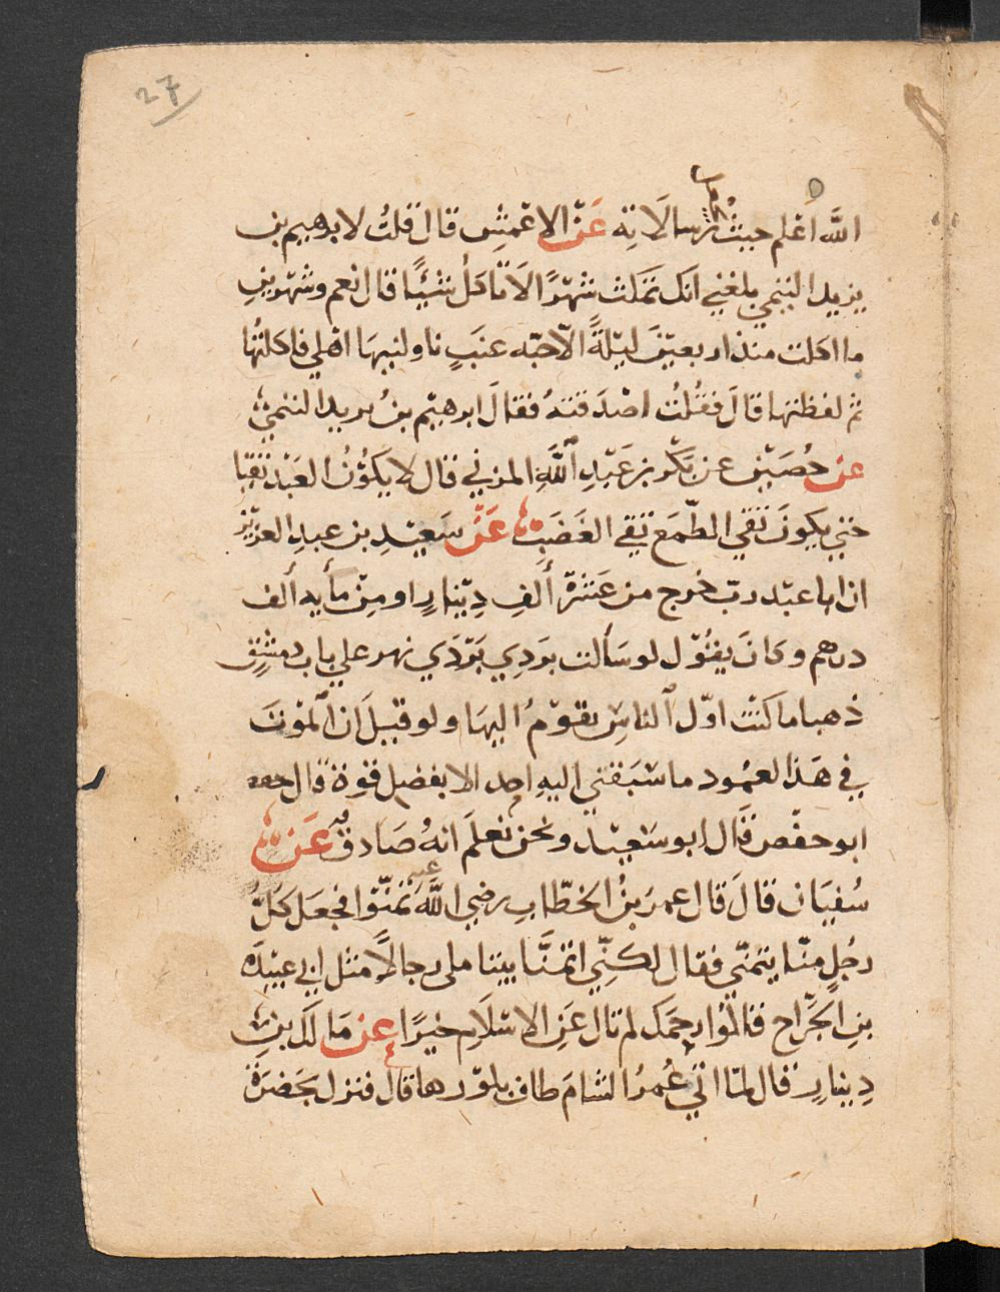 27
اللَّه أعلم حيث رسالاته عَن الاعْمَشِ قال قلتُ لابرهيم بن
يزيد التيمي بلغني انك تمكث شهرًا لا تاكل شيئًا قال نعم وشهرين
ما اكلت منذ اربعين ليلةً الا حبّه عنَبٍ ناولنيها اهلي فاكلتُها
ثم لفظتها قال فقُلتُ اصْدَقتهُ فقال ابرهيم بنُ يريد التيمي
عن حُصَيْن عن بَكْر بن عَبْدِ اللَّهِ المزني قال لا يكوُنُ العَبْد تقيا
حتي يكونَ تقي المطّمَع تقي الغَضَبِ عَنْ سَعيْدِ بن عبدِ العزيز
ان ابا عبْد رب خرج من عَشرْة ألفِ دِيْنارٍ او مِنْ مأيه ألف
درهم وكانَ يقُوْل لو سَألت بَردِي بَرْدَي نهر علي باب دمشق
ذهبا ما كنْت اوّل الناسِ يقومُ اليهَا ولو قيلَ ان الموْتَ
في هَذا العمُود ما سَبَقني اليهِ احد الا بفضل قوة قال
ابو حفْص قَال ابو سَعيْد ونحن نعلَم انهُ صَادق فيه عَن
سُفيَان قالَ قال عمرَ بنُ الخطّاب رضي اللَّه عنه تمنّوْا فجعَل كُلُّ
رجُلٍ منّا يتمنّي فقال لكنِّي اتمنَّا بيتا ملى رجالاً مثل ابي عبيْدَه
بنِ الجَرَّاح قالُوْا يرحمَك لم تال عَنِ الاسْلَامِ خيرًا عن مَالك بنِ
دِينارٍ قال لمّا اتي عُمرُ الشامَ طاف بلوْرها قال فنزل بحَضرَة